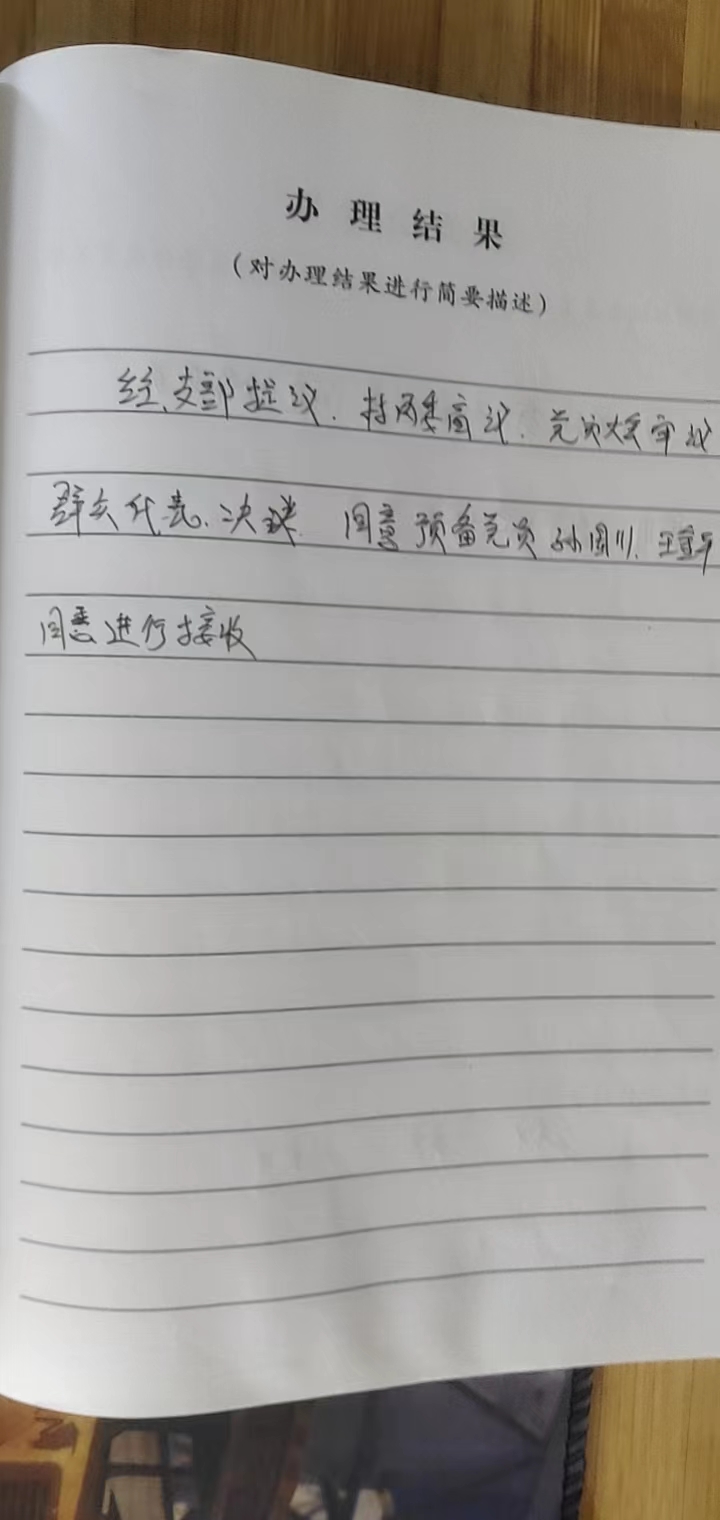 办理结果
（对办理结果进行简要描述）
经支部提议、村两委商议、党员大会审议
群众代表、决议 同意预备党员孙国川、王
同意进行接收